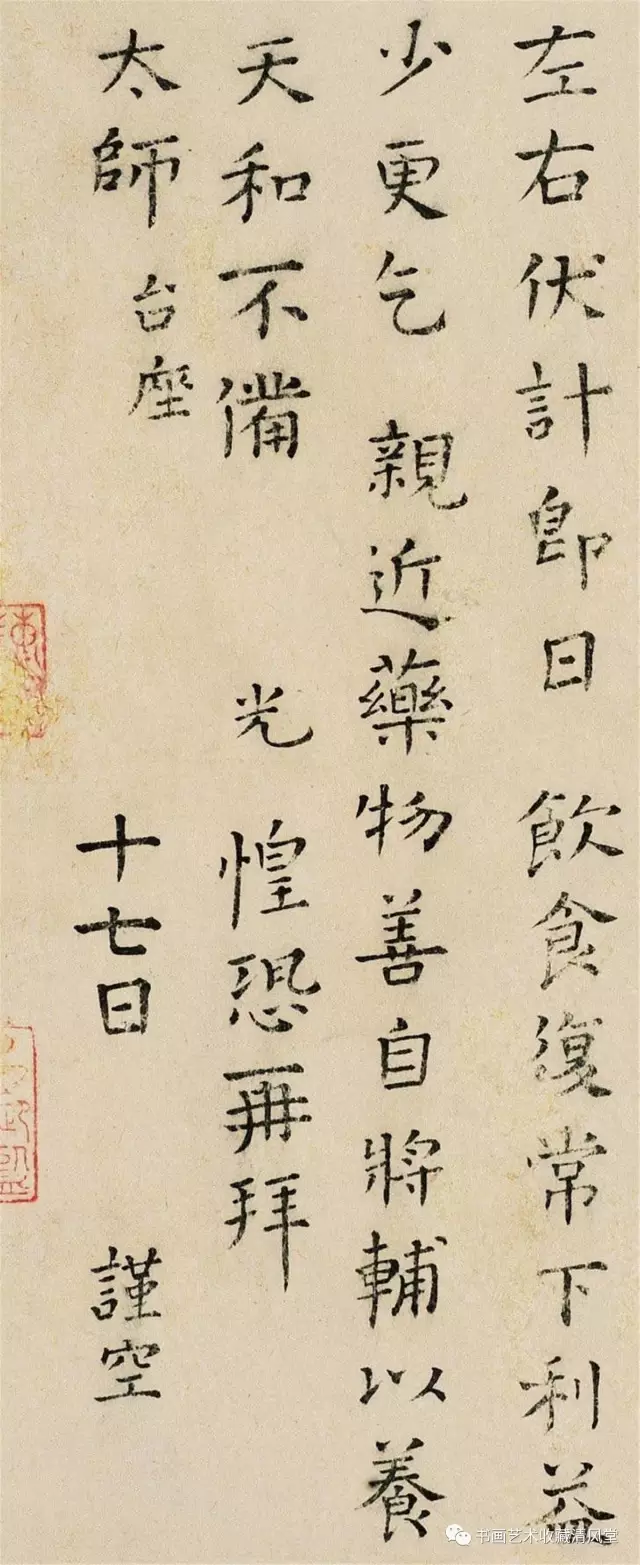 左右伏計即日 飲食復常下利益
少更乞 親近藥物善自將輔以養
天和不備 光 惶恐再拜
太師 台座 十七日 謹空
书画艺术收藏清风堂